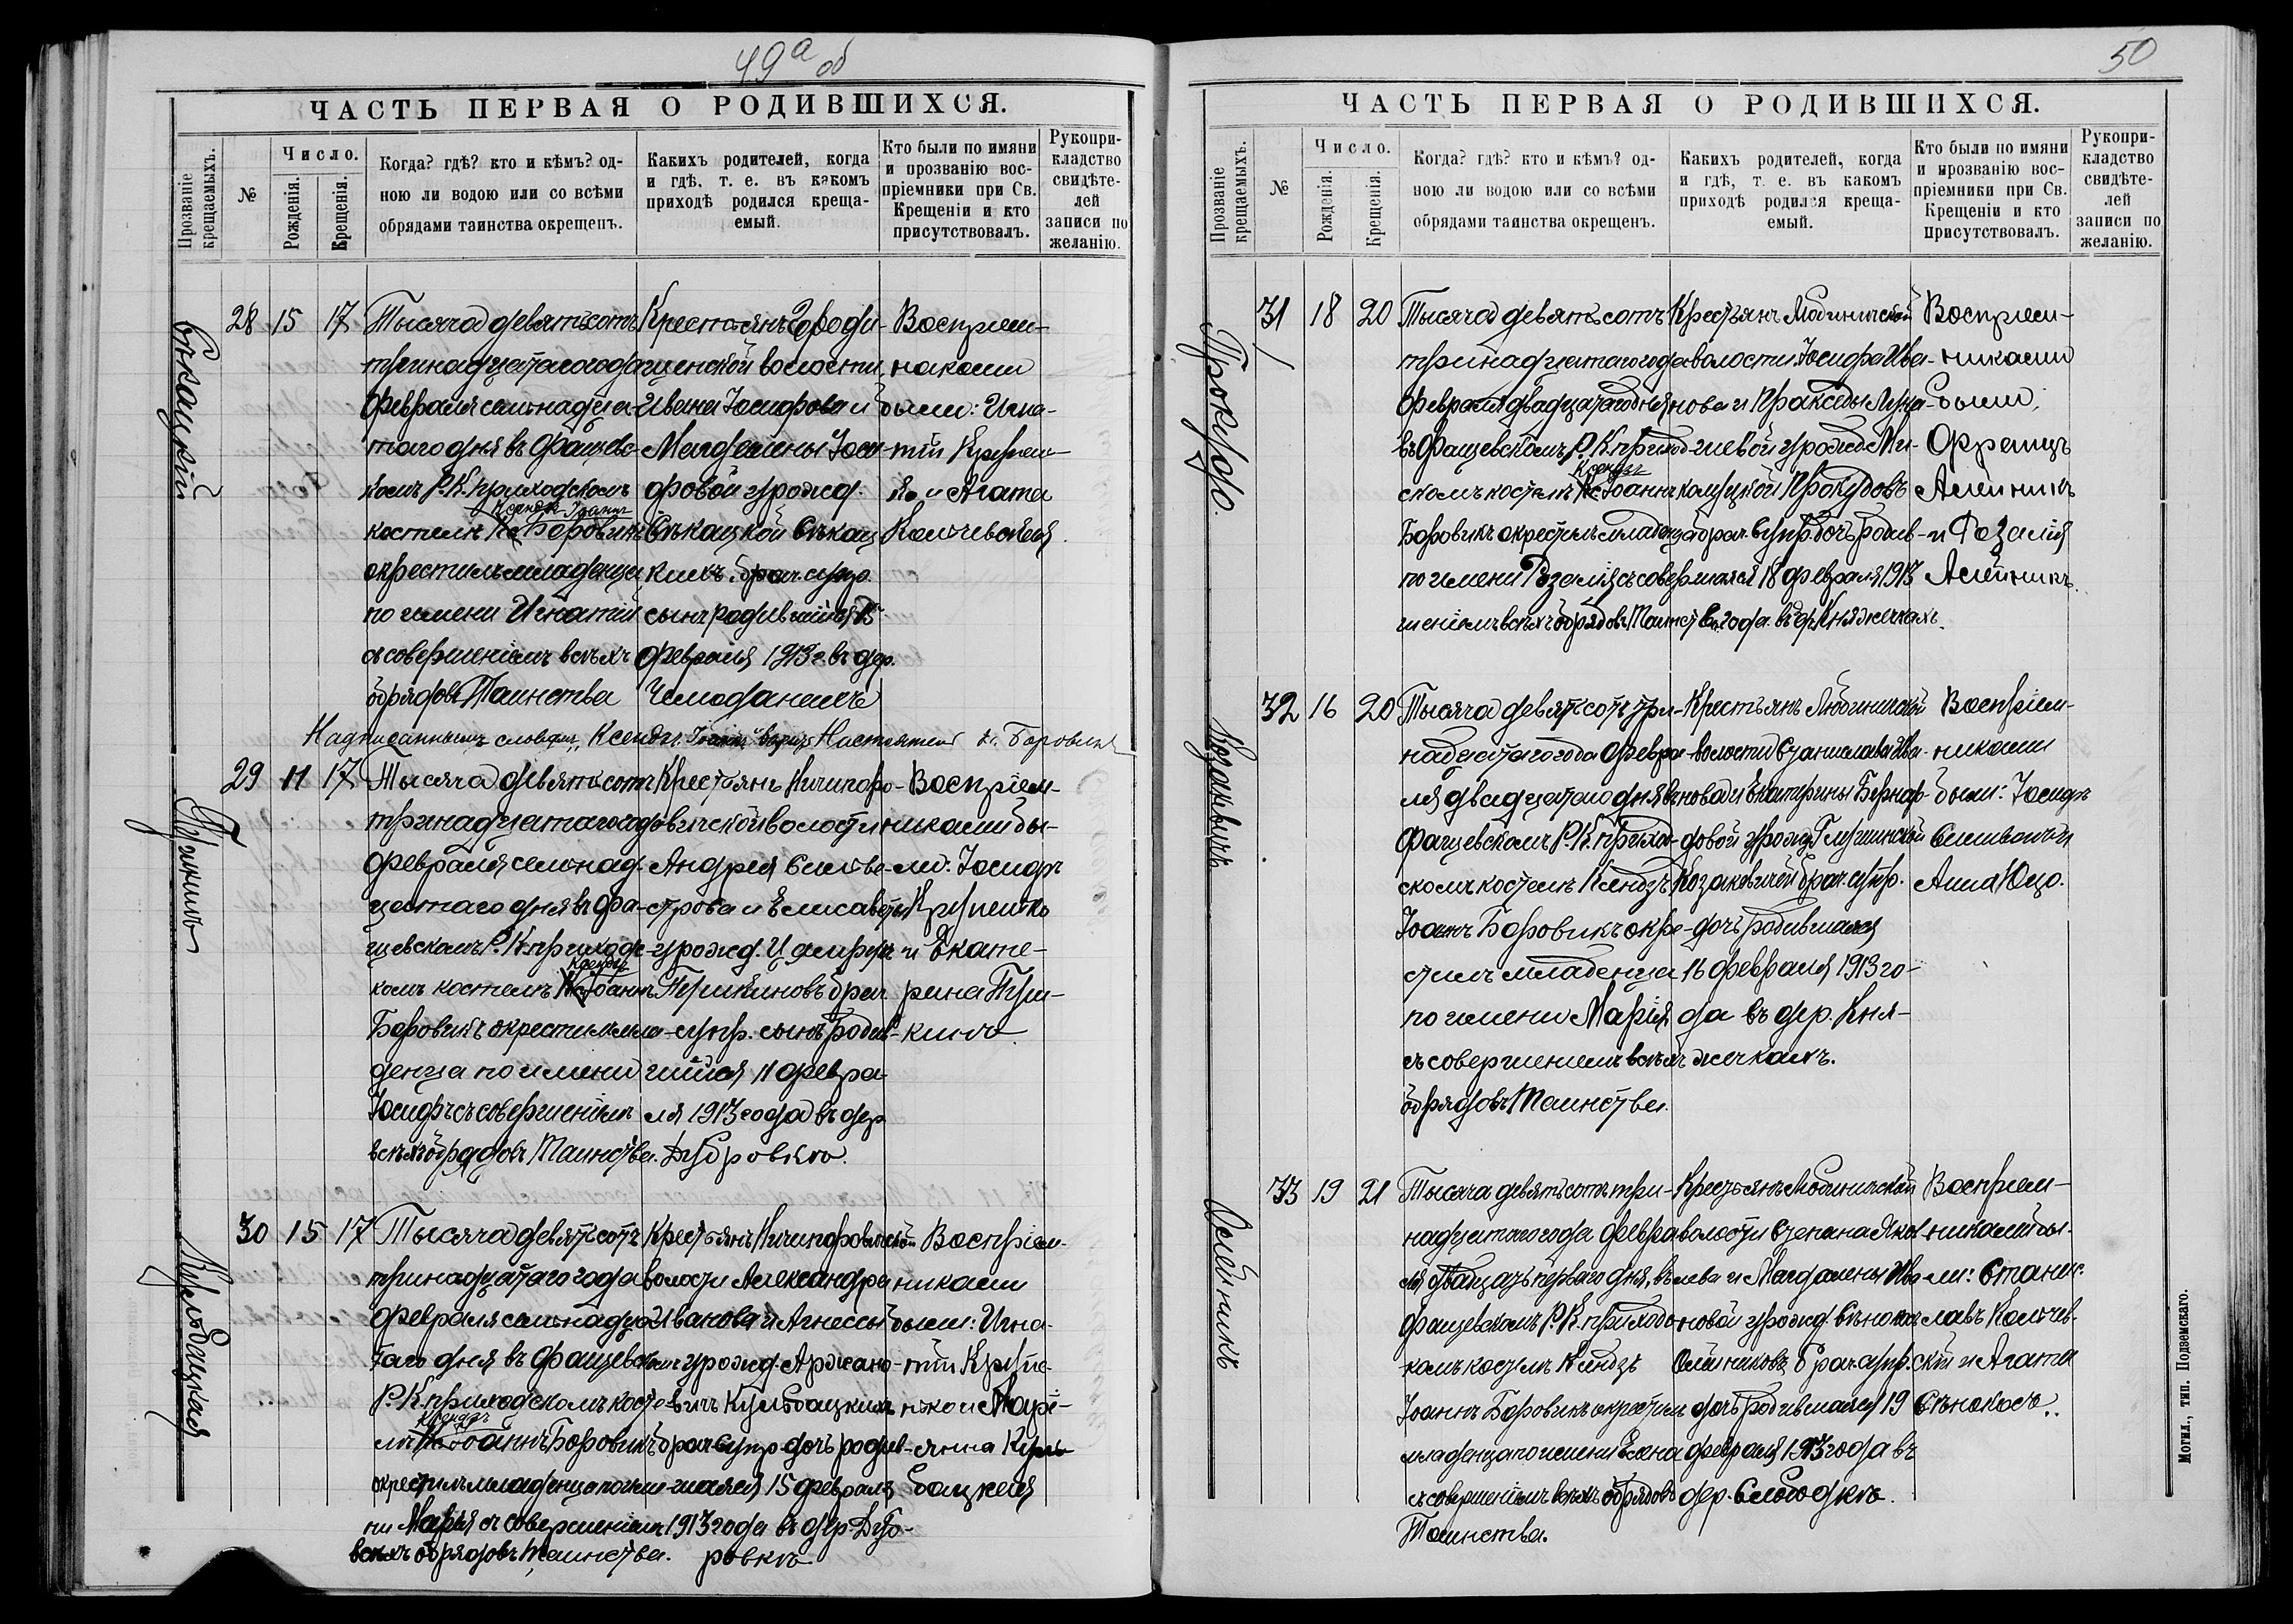 49а об
ЧАСТЬ ПЕРВАЯ О РОДИВШИХСЯ.
Прозваніе крещаемыхъ.
№
Число.
Рожденія.
Крещенія.
Когда? гдѣ? кто и кѣмъ? од-
ною ли водою или со всѣми
обрядами таинства окрещенъ.
Какихъ родителей, когда
и гдѣ, т. е. въ какомъ
приходѣ родился креща-
емый.
Кто были по имяни
и прозванію вос-
пріемники при Св.
Крещеніи и кто
присутствовалъ.
Рукопри-
кладство
свидѣте-
лей
записи по
желанію.
28 15 17
Тысяча девятьсотъ
тринадцатаго года
Февраля семнадца-
таго дня въ Фащевс-
комъ Р. К. приходскомъ
Ксендзъ Іоаннъ
костелѣ Боровикъ
окрестилъ младенца
по имени Игнатій
съ совершеніемъ всѣхъ
обрядовъ Таинства
Крестьянъ Городи-
щенской волости
Ивана Іосифова и
Магдалины Іоси-
фовой урожд.
Сѣкацкой Сѣкац
кихъ брач. супр.
сынъ родившійся 15
Февраля 1913 г. въ дер.
Чемоданахъ
Воспріем-
никами
были: Игна-
тій
и Агата
Надписаннымъ словамъ „Ксендзъ Іоаннъ" вѣрить Настоятель Кс. Боровикъ
29 11 17
Тысяча девятьсотъ
тринадцатаго года
Февраля семнад-
цатаго дня въ Фа-
щевскомъ Р. К. приходс-
Ксендзъ
комъ костелѣ Іоаннъ
Боровикъ окрестилъ мла-
денца по имени
Іосифъ съ совершеніемъ
всѣхъ обрядовъ Таинства.
Крестьянъ Ничипоро-
вичской волости
Андрея Сильве-
строва и Елисаветы
урожд.
брач.
супр. сынъ родив-
шійся 11 Февра-
ля 1913 года въ дер.
Дубровкѣ.
Воспріем-
никами бы-
ли: Іосифъ
Крупенько
и Екате-
рина
30 15 17
Кульбацкая
Тысяча девятьсотъ
тринадцатаго года
Февраля семнадца-
таго дня въ Фащевскомъ
Р. К. приходскомъ косте-
Ксендзъ
лѣ Іоаннъ Боровикъ
окрестилъ младенца по име-
ни Марія съ совершеніемъ
всѣхъ обрядовъ таинства.
Крестьянъ Ничипоровичской
волости Александра
Иванова и Агнессы
урожд. Аржано-
вичъ Кульбацкихъ
брач. супр. дочь родив-
шаяся 15 февраля
1913 года въ дер. Дуб-
ровкѣ
Воспріем-
никами
были: Игна-
тій Крупе-
нько и Марі-
янна Куль-
бацкая
50
ЧАСТЬ ПЕРВАЯ О РОДИВШИХСЯ.
Прозваніе крещаемыхъ.
№
Число.
Рожденія.
Крещенія.
Когда? гдѣ? кто и кѣмъ? од-
ною ли водою или со всѣми
обрядами таинства окрещенъ.
Какихъ родителей, когда
и гдѣ, т. е. въ каком
приходѣ родился креща-
емый.
Кто были по имяни
и прозванію вос-
пріемники при Св.
Крещеніи и кто
присутствовалъ.
Рукопри-
кладство
свидѣте-
лей
записи по
желанію.
31 18 20
Тысяча девятьсотъ
тринадцатаго года
Февраля двадцатаго дня
въ Фащевскомъ Р. К. приход-
Ксендзъ
скомъ костелѣ Іоаннъ
Боровикъ окрестилъ младенца
по имени Розалія съ совер-
шеніемъ всѣхъ обрядовъ Таинства.
Крестьянъ Любиничской
волости Іосифа Ива-
нова и Пракседы
урожд.
брач. супр. дочь родив-
шаяся 18 февраля 1913
года въ дер. Княжичкахъ.
Воспріем-
никами
были:
Францъ
Алейникъ
и Розалія
Алейникъ.
32 16 20
Козаковичъ
Тысяча девятьсотъ три-
надцатаго года Февра-
ля двадцатаго дня въ
Фащевскомъ Р. К. приход-
скомъ костелѣ Ксендзъ
Іоаннъ Боровикъ окре-
стилъ младенца
по имени Марія
съ совершеніемъ всѣхъ
обрядовъ Таинства.
Крестьянъ Любиничской
волости Станислава Ива-
нова и Екатерины Бернар-
довой урожд.
Козаковичей брач. супр.
дочь родившаяся
16 Февраля 1913 го-
да въ дер. Кня-
жичкахъ.
Воспріем-
никами
были: Іосифъ
и
Анна Юцо.
33 19 21
Олейникъ
Тысяча девятьсотъ три-
надцатаго года февра-
ля двадцать перваго дня, въ
Фащевскомъ Р. К. приходс-
комъ костелѣ Ксендзъ
Іоаннъ Боровикъ окрестилъ
младенца по имени Елена
съ совершеніемъ всѣхъ обрядовъ
Таинства.
Крестьянъ Любиничской
волости Степана Яков-
лева и Магдалены Ива-
новой урожд. Сѣнокосъ
Олейниковъ брач. супр.
дочь родившаяся 19
февраля 1913 года въ
дер. Слободкѣ.
Воспріем-
никами бы-
ли: Станис-
лавъ Кольчев-
скій и Агата
Сѣнокосъ.
Могил., тип. Подземскаго.